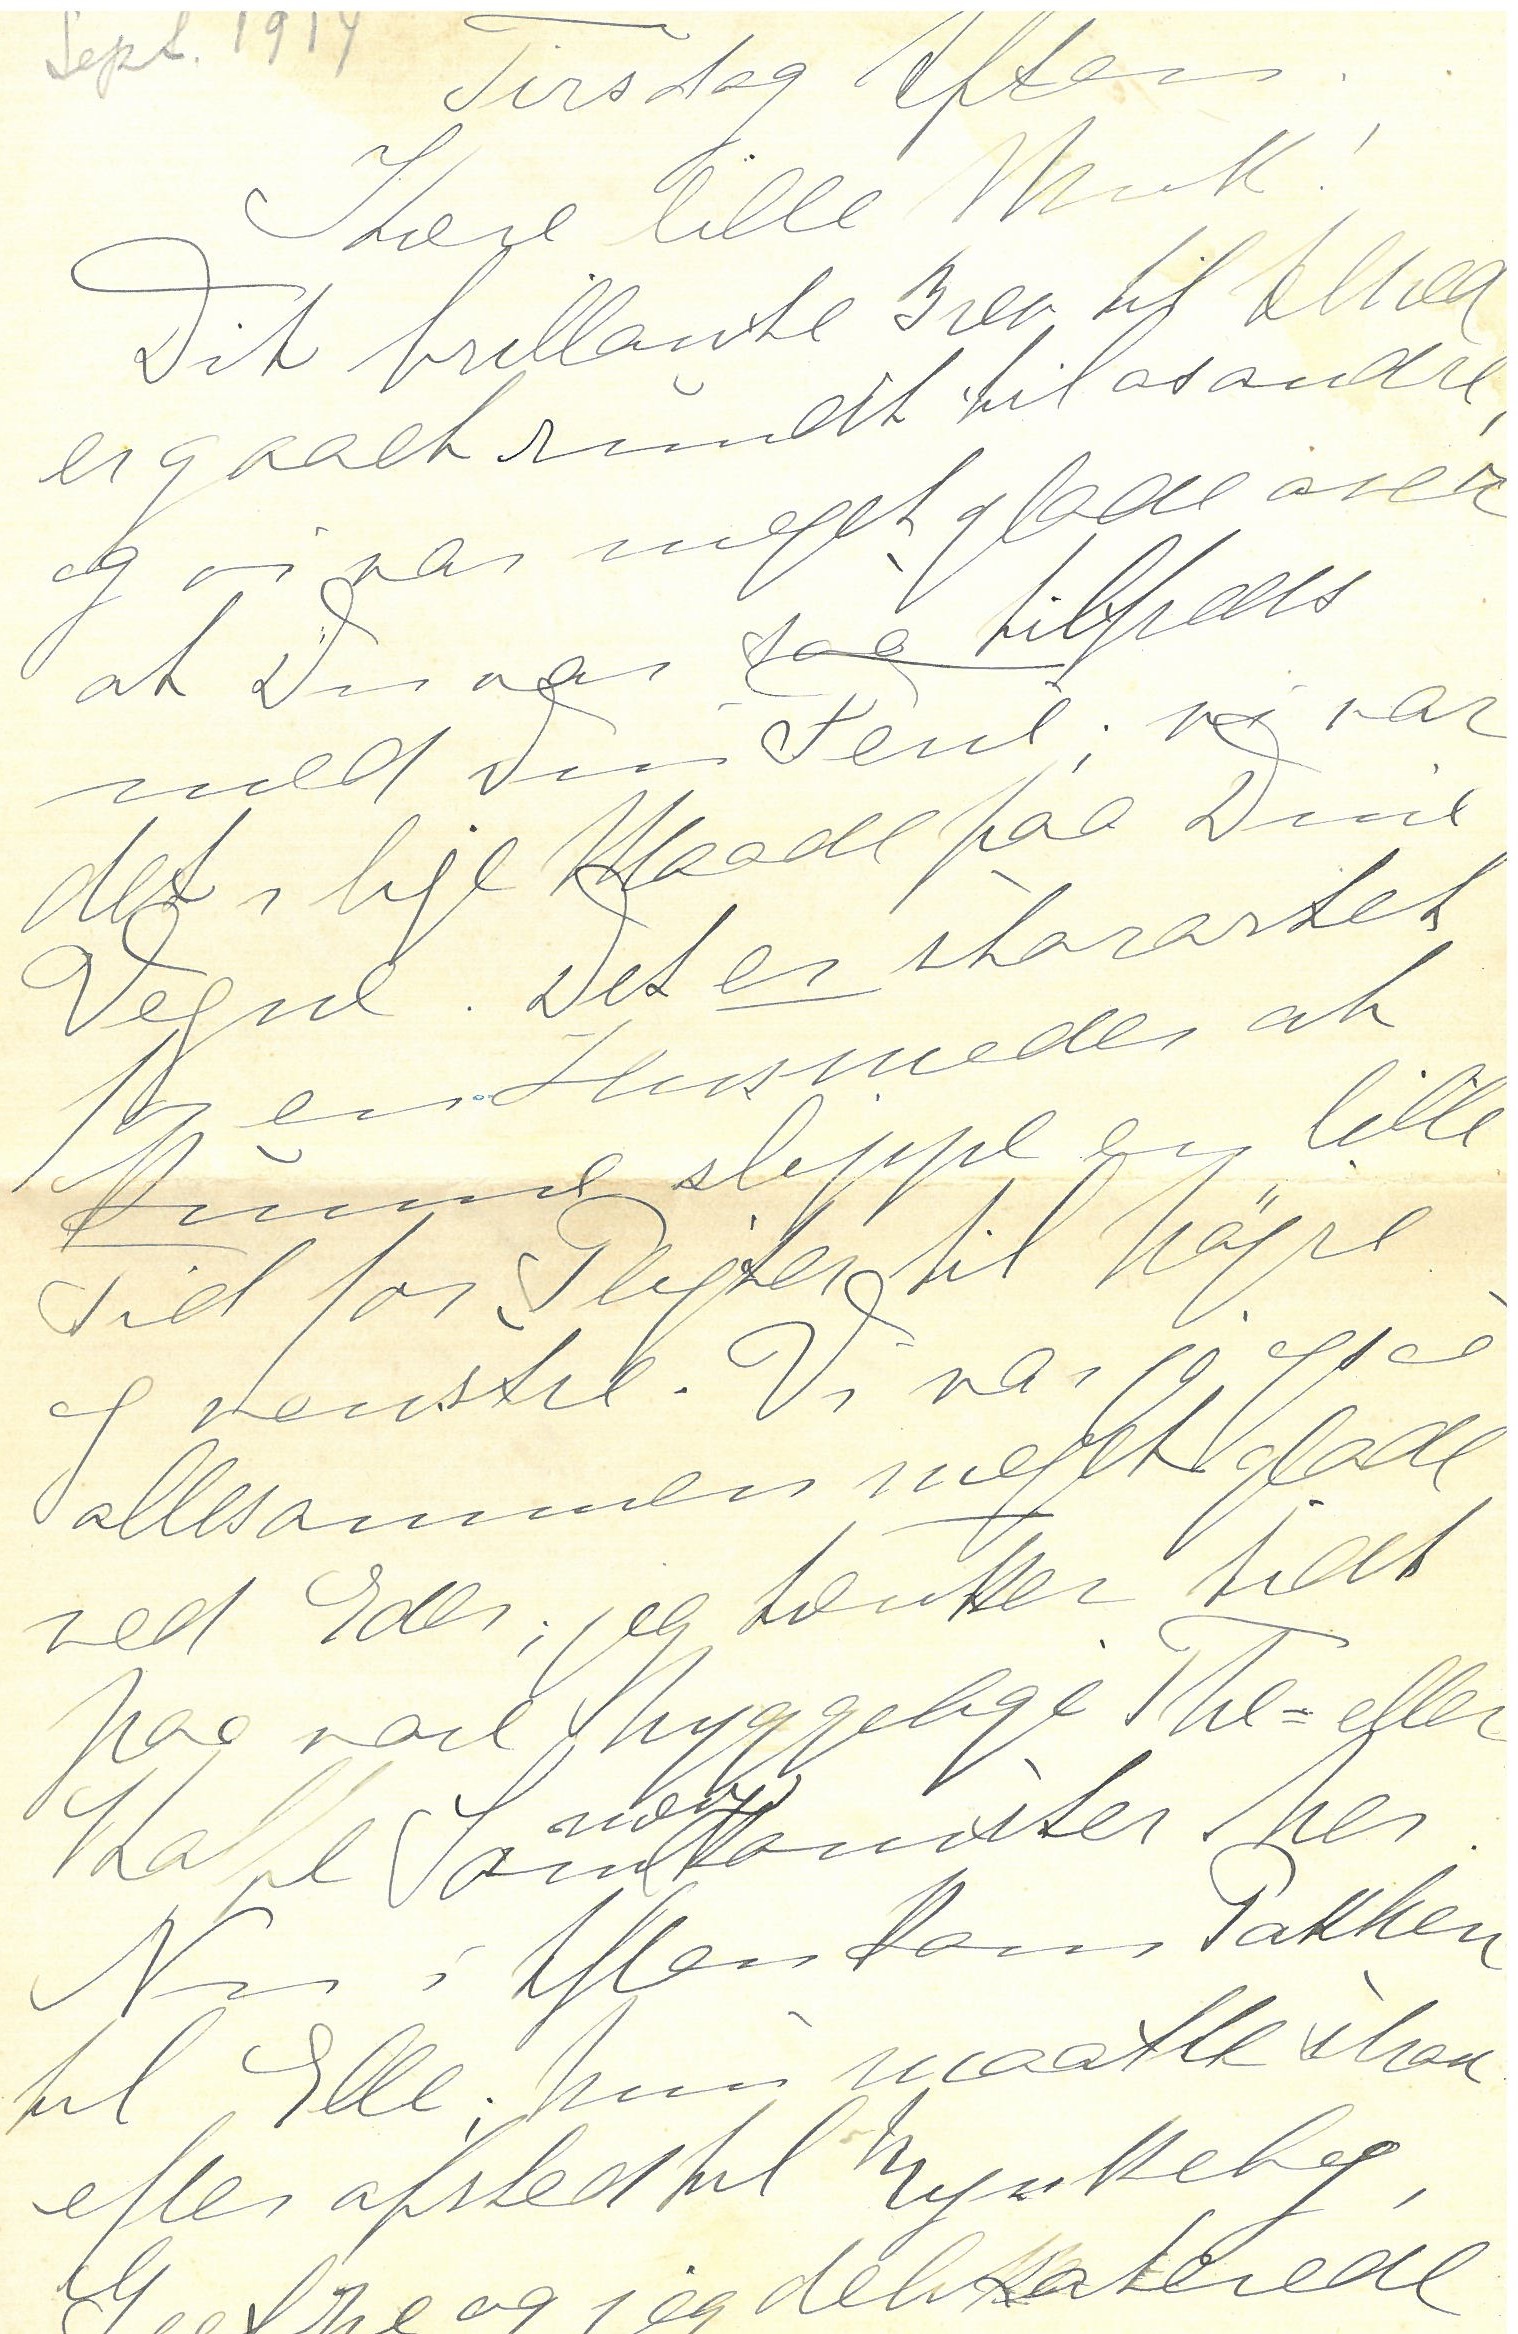 Sept. 1914
Tirsdag Aften.
Kære lille Muk!
Dit brillante Brev til Alhed
er gaaet rundt til os andre,
og vi var meget glade over
at Du var saa tilfreds
med Din Ferie; vi var
det i lige Maade paa Dine
Vegne. Det er storartet
for en Husmoder at
kunne slippe en lille
Tid for Pligter til højre
og venstre. Vi var jo ogsaa
allesammen meget glade
ved Eder; jeg tænker tidt
paa vore hyggelige The= eller
Kaffe Sammenkomster her.
Nu i Aften kom Pakken
til Elle; hun maatte strax
efter afsted til Rynkeby,
og jeg delikaterede